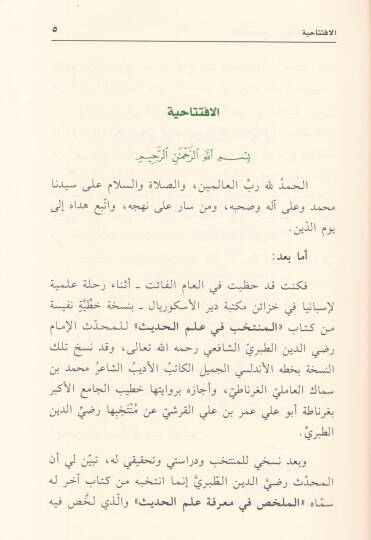 الافتتاحية ٥
الافتتاحية
بسم الله الرَّحمن الرَّحيم
الحمدُ لله ربِّ العالمين، والصلاة والسلام على سيدنا
محمد وعلى آله وصحبه، ومن سار على نهجه، واتّبع هداه إلى
يوم الدّين.
أما بعد:
فكنت قد حظيت في العام الفائت ـ أثناء رحلة علمية
لإسبانيا في خزائن مكتبة دير الأسكوريال ـ بنسخة خطِّيَّةٍ نفيسة
من كتاب «المنتخب في علم الحديث» للمحدّث الإمام
رضي الدين الطبريّ الشافعي رحمه الله تعالى، وقد نسخ تلك
النسخة بخطه الأندلسي الجميل الكاتبُ الأديبُ الشاعرُ محمد بن
سماك العامليّ الغرناطيّ، وأجازه بروايتها خطيب الجامع الأكبر
بغرناطة أبو علي عمر بن علي القرشيّ عن مُنْتَخِبها رضيِّ الدين
الطبريِّ.
وبعد نسخي للمنتخب ودراستي وتحقيقي له، تبيّن لي أن
المحدّث رضيَّ الدين الطّبريَّ إنما انتخبه من كتاب آخر له
سمّاه «الملخص في معرفة علم الحديث» والّذي لخَّص فيه